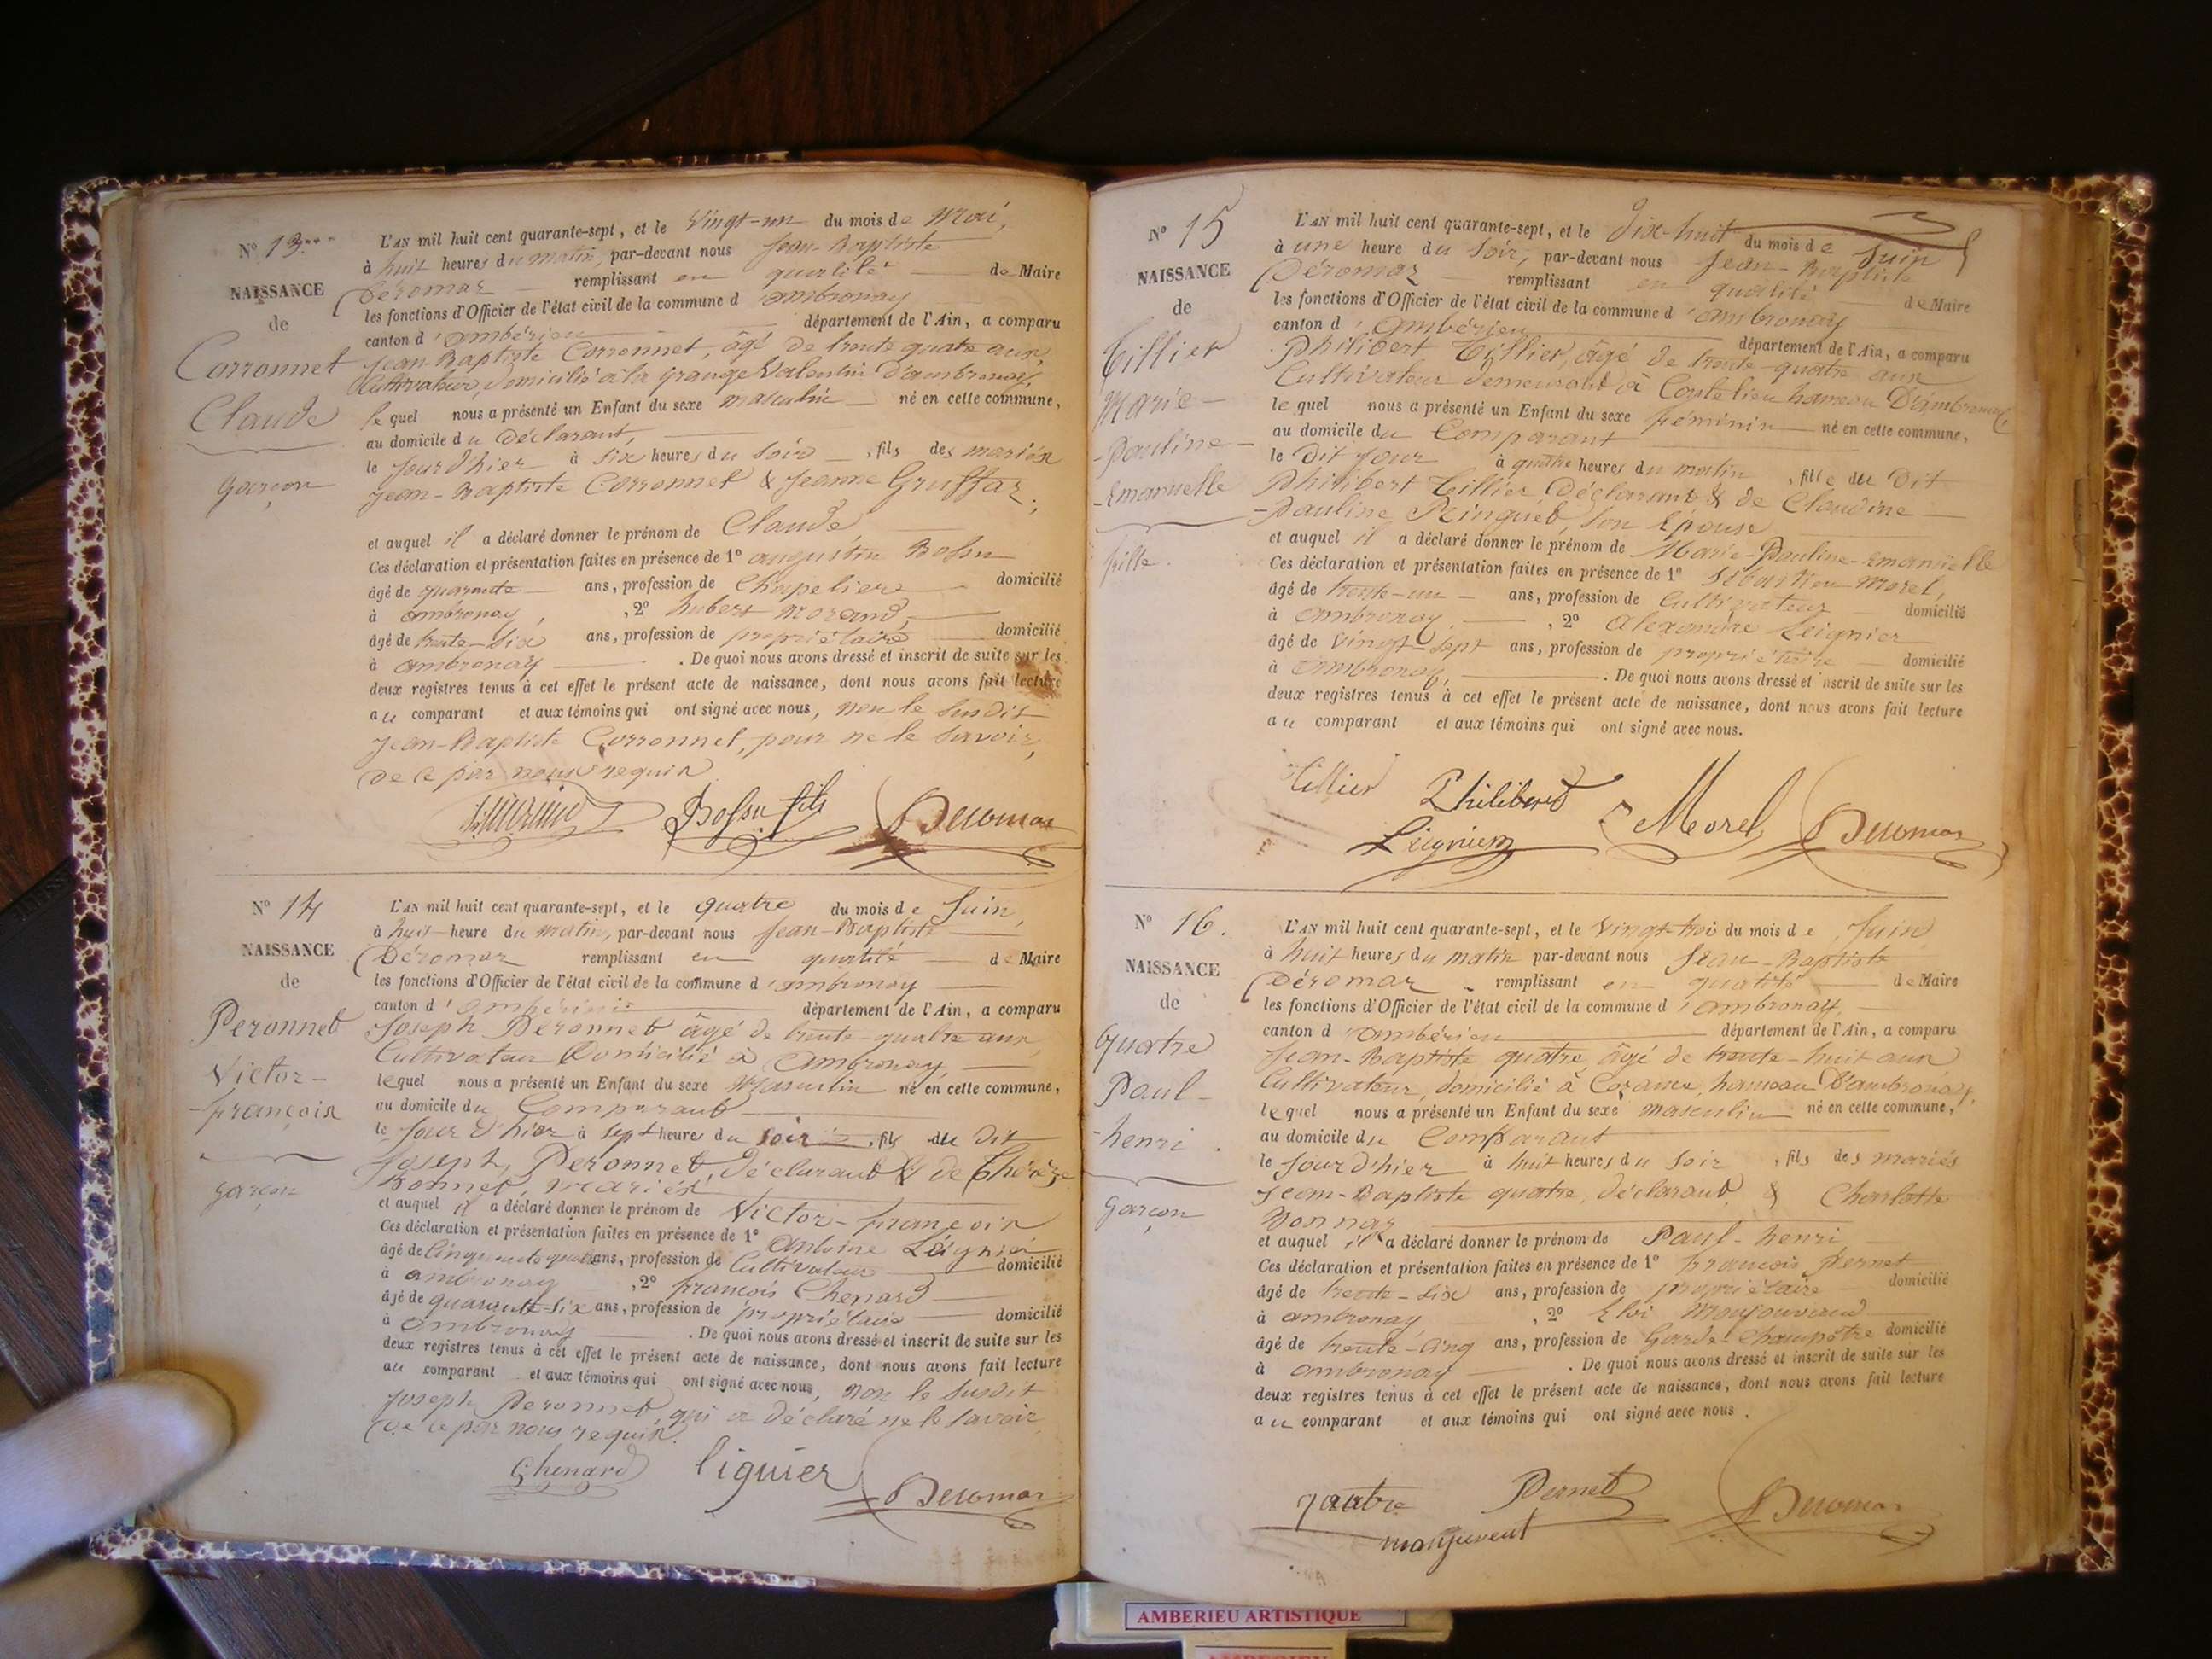 N° 13
NAISSANCE
de
Corronnet
Claude
garçon
L'AN mil huit cent quarante-sept, et le vingt-un du mois de Mai,
à huit heures du matin, par-devant nous Jean-Baptiste
Déromas remplissant en qualité de Maire
les fonctions d'Officier de l'état civil de la commune d'ambronay
canton d'ambérieu département de l'Ain, a comparu
Jean-Baptiste Corronnet, âgé de trente quatre ans,
Cultivateur, domicilié à la grange Valentin d'ambronay,
lequel nous a présenté un Enfant du sexe masculin né en cette commune,
au domicile du Déclarant,
le jour d'hier à six heures du soir, fils des mariés
Jean-Baptiste Corronnet & Jeanne Gruffaz,
et auquel il a déclaré donner le prénom de Claude
Ces déclaration et présentation faites en présence de 1° augustin Bossu
âgé de quarante ans, profession de Chapelier domicilié
à ambronay, 2° hubert Morand,
âgé de trente-six ans, profession de propriétaire domicilié
à ambronay. De quoi nous avons dressé et inscrit de suite sur les
deux registres tenus à cet effet le présent acte de naissance, dont nous avons fait lecture
au comparant et aux témoins qui ont signé avec nous, non le susdit
Jean-Baptiste Corronnet, pour ne le savoir,
de ce par nous requis
Bossu fils Deromas
N° 14
NAISSANCE
de
Peronnet
Victor-
-françois
garçon
L'AN mil huit cent quarante-sept, et le quatre du mois de Juin,
à huit heure du matin, par-devant nous Jean-Baptiste
Déromas remplissant en qualité de Maire
les fonctions d'Officier de l'état civil de la commune d'ambronay
canton d'ambérieu département de l'Ain, a comparu
Joseph Peronnet âgé de trente-quatre ans
Cultivateur Domicilié à Ambronay,
lequel nous a présenté un Enfant du sexe Masculin né en cette commune,
au domicile du Comparant
le jour d'hier à sept heures du soir, fils du dit
Joseph Peronnet Déclarant & de Thérèze
Bonnet, mariés
et auquel il a déclaré donner le prénom de Victor-françois
Ces déclaration et présentation faites en présence de 1° Antoine Leignier
âgé de cinquante quatre ans, profession de Cultivateur domicilié
à ambronay, 2° françois Chenard
âgé de quarante-six ans, profession de propriétaire domicilié
à ambronay. De quoi nous avons dressé et inscrit de suite sur les
deux registres tenus à cet effet le présent acte de naissance, dont nous avons fait lecture
au comparant et aux témoins qui ont signé avec nous, non le susdit
Joseph Peronnet, qui a déclaré ne le savoir
de ce par nous requis.
Chenard liguier Deromas
N° 15
NAISSANCE
de
Tillier
Marie-
-Pauline-
-Emanuelle
fille.
L'AN mil huit cent quarante-sept, et le Dix-huit du mois de Juin
à une heure du soir, par-devant nous Jean-Baptiste
Déromas remplissant en qualité de Maire
les fonctions d'Officier de l'état civil de la commune d'ambronay
canton d'ambérieu département de l'Ain, a comparu
Philibert Tillier, âgé de trente-quatre ans
Cultivateur demeurant à Coutelieu hameau D'ambronay
lequel nous a présenté un Enfant du sexe féminin né en cette commune,
au domicile du Comparant
le dit jour à quatre heures du matin, fille du Dit
Philibert Tillier Déclarant & de Claudine-
-Pauline Ringuet son Epouse
et auquel il a déclaré donner le prénom de Marie-Pauline-Emanuelle
Ces déclaration et présentation faites en présence de 1° Sébastien Morel,
âgé de trente-un ans, profession de Cultivateur domicilié
à ambronay, 2° Alexandre Leignier
âgé de vingt-sept ans, profession de propriétaire domicilié
à ambronay,. De quoi nous avons dressé et inscrit de suite sur les
deux registres tenus à cet effet le présent acte de naissance, dont nous avons fait lecture
au comparant et aux témoins qui ont signé avec nous.
Tillier Philibert Morel Deromas
Leignier
N° 16.
NAISSANCE
de
Quatre
Paul-
-henri.
Garçon
L'AN mil huit cent quarante-sept, et le vingt-trois du mois de Juin
à huit heures du matin par-devant nous Jean-Baptiste
Déromas remplissant en qualité de Maire
les fonctions d'Officier de l'état civil de la commune d'ambronay,
canton d'ambérieu département de l'Ain, a comparu
Jean-Baptiste quatre, âgé de trente-huit ans
Cultivateur, domicilié à hameau D'ambronay,
lequel nous a présenté un Enfant du sexe masculin né en cette commune,
au domicile du Comparant
le jour d'hier à huit heures du soir, fils des mariés
Jean-Baptiste quatre, déclarant & Charlotte
Bonnaz
et auquel il a déclaré donner le prénom de Paul-henri
Ces déclaration et présentation faites en présence de 1° François Pernet
âgé de trente-six ans, profession de propriétaire domicilié
à ambronay, 2° Eloi
âgé de trente-cinq ans, profession de Garde-Champêtre domicilié
à ambronay. De quoi nous avons dressé et inscrit de suite sur les
deux registres tenus à cet effet le présent acte de naissance, dont nous avons fait lecture
au comparant et aux témoins qui ont signé avec nous.
quatre Pernet Deromas
AMBERIEU ARTISTIQUE